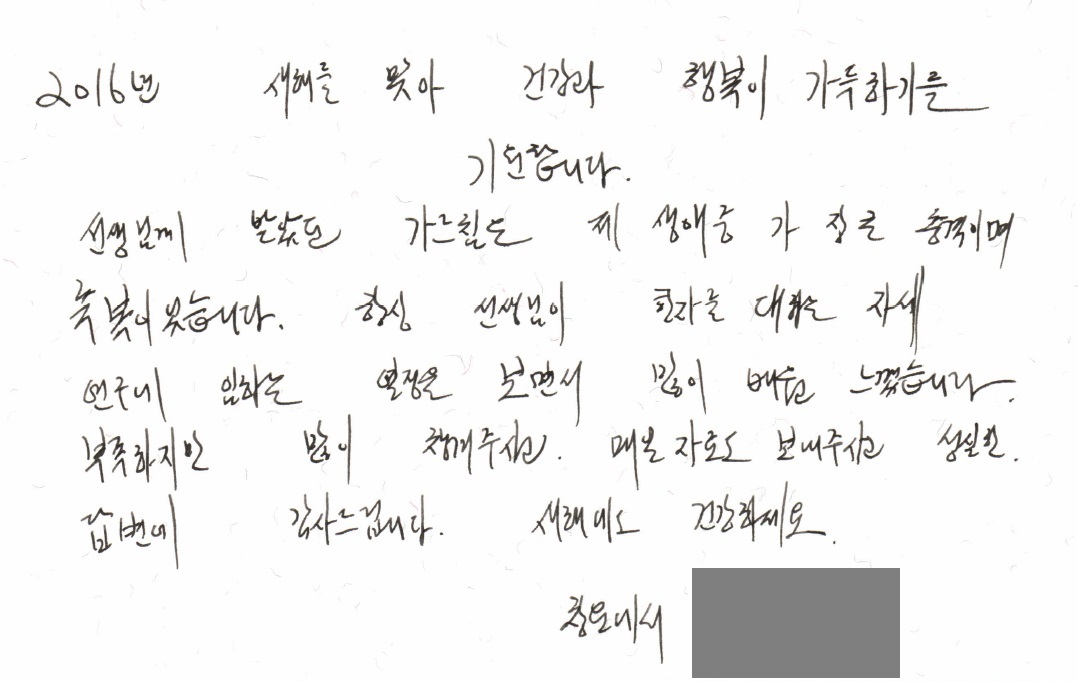 2016년 새해를 맞아 건강과 행복이 가득하기를
기원합니다.
선생님께 받았던 가르침은 제 생애중 가장 큰 충격이며
축복이었습니다. 항상 선생님이 환자를 대하는 자세
연구에 임하는 열정을 보면서 많이 배우고 느꼈습니다.
부족하지만 많이 챙겨주시고. 매번 자료도 보내주시고 성실한.
답변에 감사드립니다. 새해에도 건강하세요.